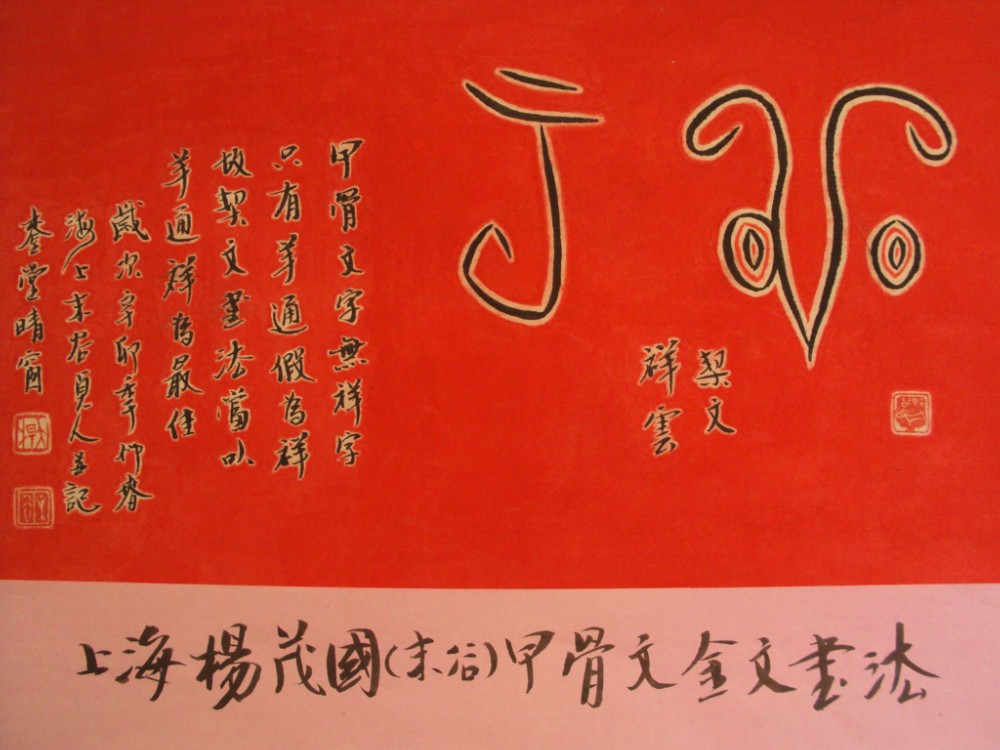 羊云
栔文
祥雲
甲骨文字無祥字
只有羊通假為祥
故栔文書法當以
羊通祥為最佳
歲次辛卯季仲春
海上末谷真人並記
堂晴窗
上海楊茂國(末谷)甲骨文金文書法